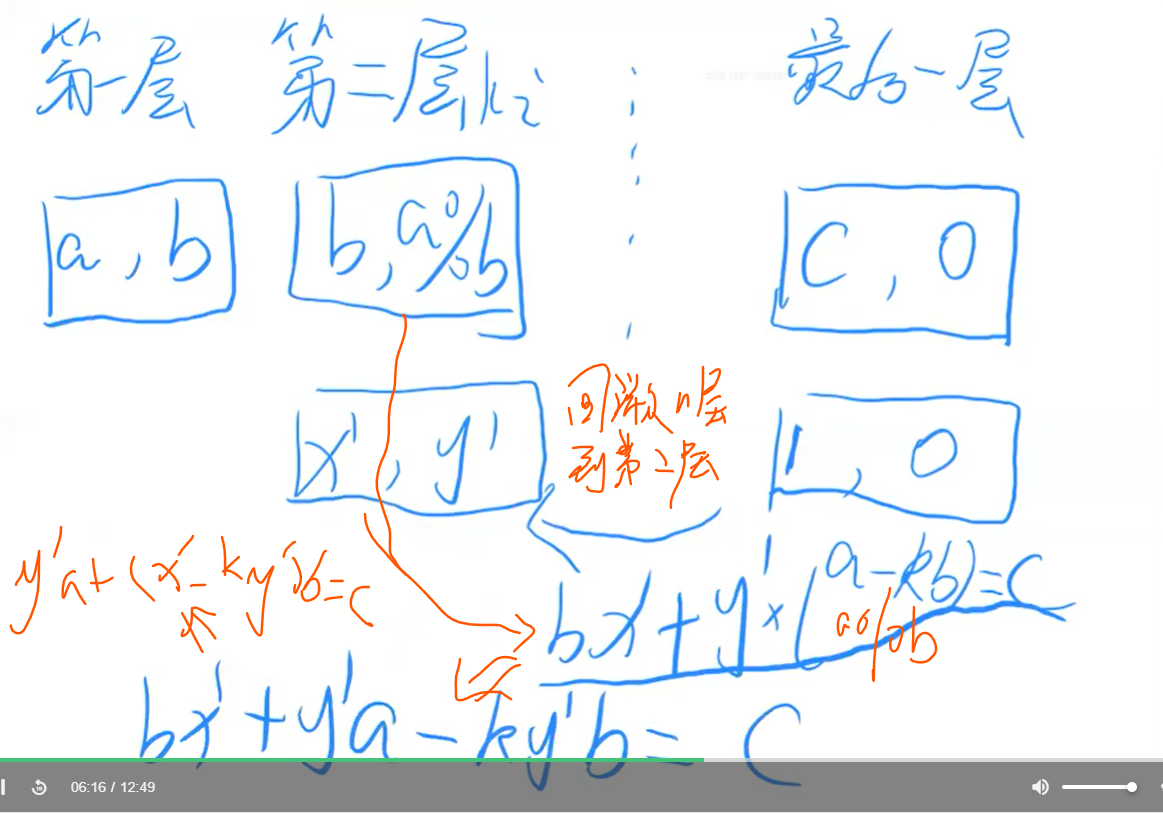 第一层 第二层 最后一层
a , b
b , a%b
C , 0
回溯 n 层
到第二层
x' , y'
1 , 0
y'a + (x' - ky')b = c
bx' + y' × (a - kb) = C
a%b
bx' + y'a - ky'b = C
06:16 / 12:49